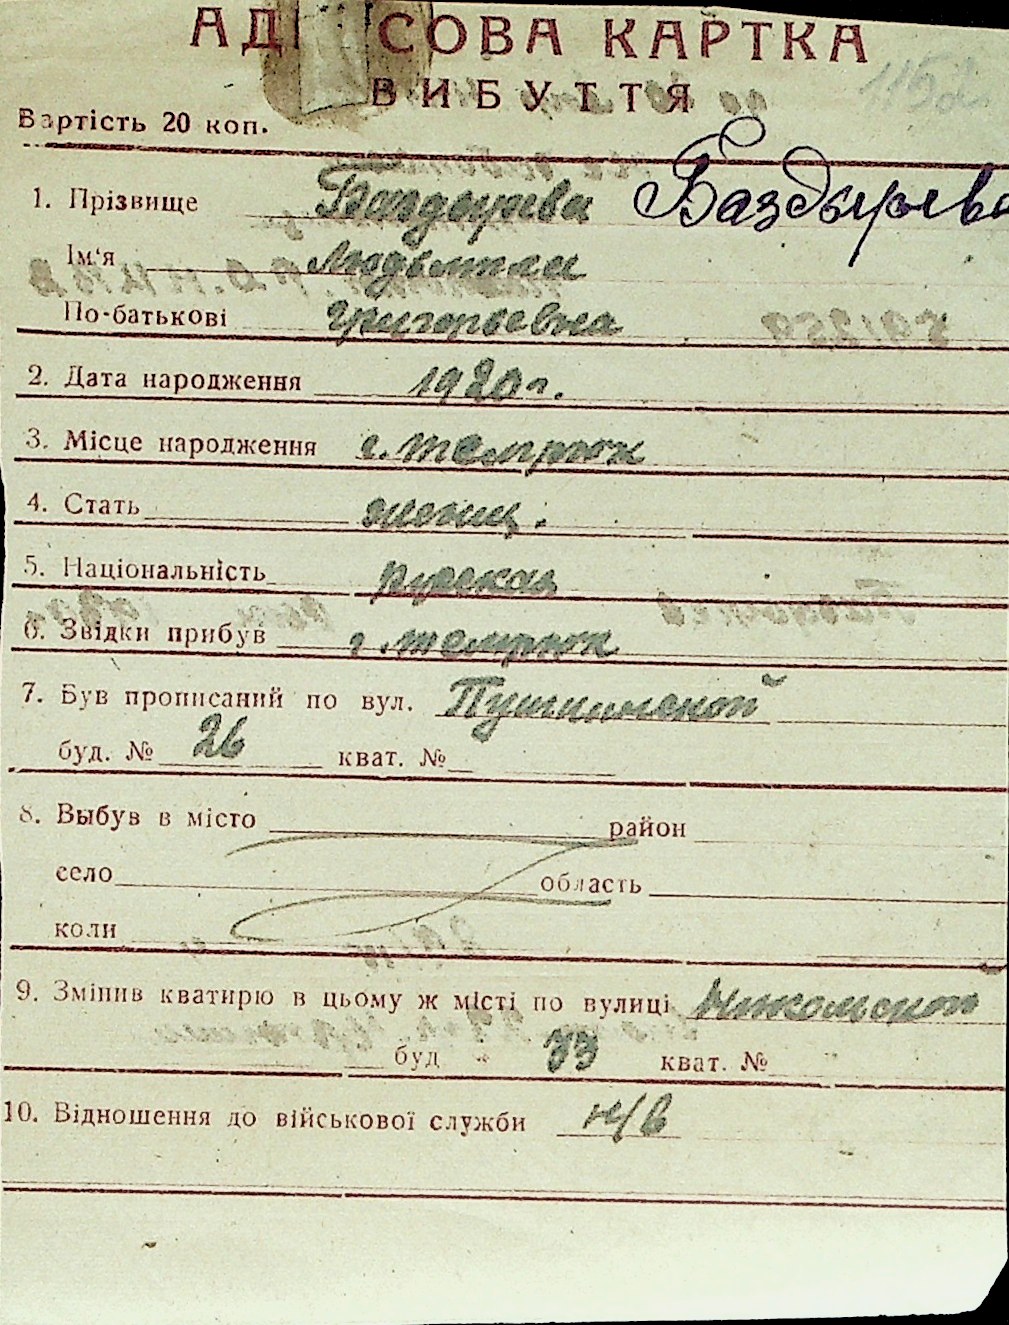 АДРЕСОВА КАРТКА
1152
ВИБУТТЯ
Вартість 20 коп.
1. Прізвище Баздырева Баздырева
Ім'я Людмила
По-батькові Григорьевна
2. Дата народження 1920 г.
3. Місце народження г. Темрюк
4. Стать женщ.
5. Національність русская
6. Звідки прибув г. Темрюк
7. Був прописаний по вул. Пушкинской
буд. № 26 кват. №
8. Выбув в місто район
село область
коли
9. Змінив кватирю в цьому ж місті по вулиці
буд 33 кват. №
10. Відношення до військової служби н/в